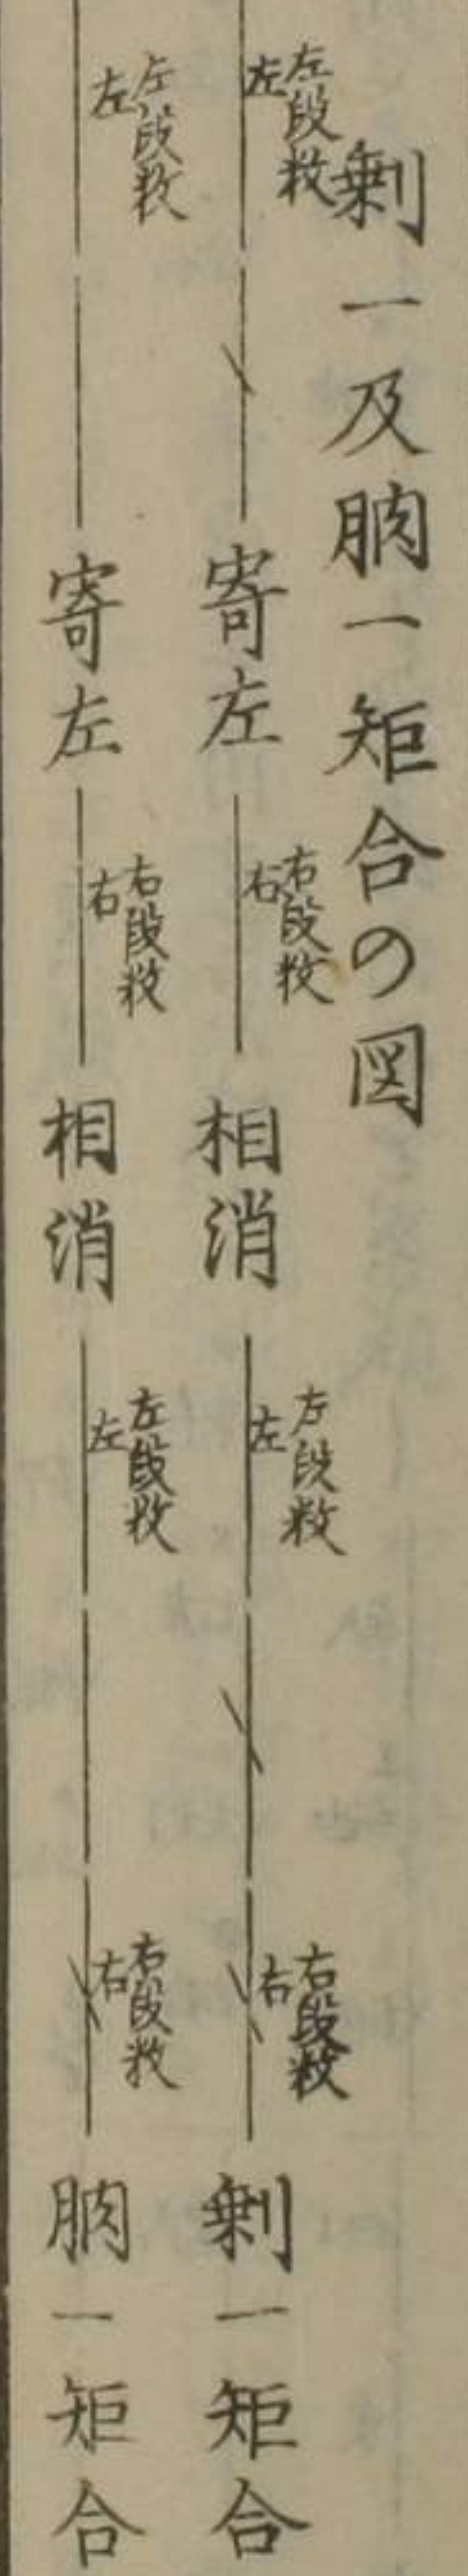 剰一及朒一矩合の図
左左段数 寄左 右右段数 相消 左左段数 右右段数 剰一矩合
左左段数 寄左 右右段数 相消 左左段数 右右段数 朒一矩合